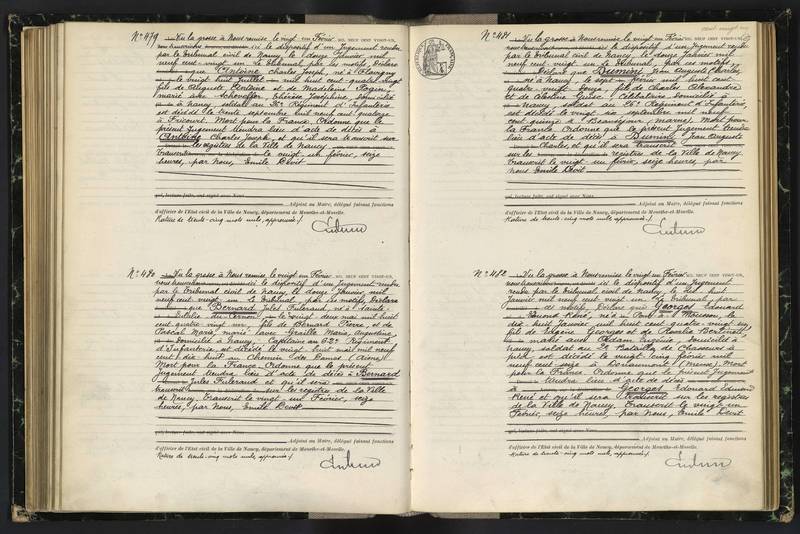 N° 479 Vu la grosse à Nous remise, le vingt un Février MIL NEUF CENT VINGT-UN,
le dispositif d'un Jugement rendu
par le Tribunal civil de Nancy, le douze Janvier mil
neuf cent vingt un. Le Tribunal, par ces motifs, Déclare
que Antoine, Charles Joseph, né à
le huit Juillet mil huit cent quatre vingt
fils de Auguste Antoine et de Madeleine
marié à Schaeffer Thérèse Joséphine, domicilié
à Nancy, soldat au 26e Régiment d'Infanterie
est décédé le trente septembre mil neuf cent quatorze
à Fricourt. Mort pour la France. Ordonne que le
présent Jugement tiendra lieu d'acte de décès à
Antoine Charles Joseph, et qu'il sera transcrit sur
les registres de la Ville de Nancy
Transcrit le vingt un février, seize
heures, par Nous, Emile Devit
qui, lecture faite, ont signé avec Nous
Adjoint au Maire, délégué faisant fonctions
d'officier de l'Etat civil de la Ville de Nancy, département de Meurthe-et-Moselle.
Rature de trente-cinq mots nuls, approuvée.
N° 480 Vu la grosse à Nous remise, le vingt un Février MIL NEUF CENT VINGT-UN,
le dispositif d'un Jugement rendu
par le Tribunal civil de Nancy, le douze Janvier mil
neuf cent vingt un. Le Tribunal, par ces motifs, Déclare
que Bernard Jules Fulcrand, né à Sainte
le vingt deux mai mil huit
cent quatre vingt un, fils de Bernard Pierre, et de
Pascal Marie, marié avec Graille Maria, Augustine,
domicilié à Nancy, Capitaine au 62e Régiment
d'Infanterie, est décédé le vingt huit mai mil neuf
cent dix huit au Chemin des Dames (Aisne)
Mort pour la France. Ordonne que le présent
Jugement tiendra lieu d'acte de décès à Bernard
Jules Fulcrand et qu'il sera
transcrit sur les registres de la Ville
de Nancy. Transcrit le vingt un Février, seize
heures, par Nous, Emile Devit
qui, lecture faite, ont signé avec Nous
Adjoint au Maire, délégué faisant fonctions
d'officier de l'Etat civil de la Ville de Nancy, département de Meurthe-et-Moselle.
Rature de trente-cinq mots nuls, approuvée.
N° 481 Vu la grosse à Nous remise, le vingt un Février MIL NEUF CENT VINGT-UN,
le dispositif d'un Jugement rendu
par le Tribunal civil de Nancy, le douze Janvier mil
neuf cent vingt un. Le Tribunal, par ces motifs,
Déclare que Jean Auguste Charles,
né à Nancy, le sept février mil huit cent
quatre vingt fils de Charles Alexandre
et de Célestine célibataire domicilié à
Nancy, soldat au 26e Régiment d'Infanterie,
est décédé le vingt six septembre mil neuf
cent quinze à (Marne). Mort pour
la France. Ordonne que le présent Jugement tiendra
lieu d'acte de décès à Jean Auguste
Charles, et qu'il sera transcrit
sur les registres de la Ville de Nancy
Transcrit le vingt un février, seize heures, par
Nous Emile Devit
qui, lecture faite, ont signé avec Nous
Adjoint au Maire, délégué faisant fonctions
d'officier de l'Etat civil de la Ville de Nancy, département de Meurthe-et-Moselle.
Rature de trente-cinq mots nuls, approuvée.
N° 482 Vu la grosse à Nous remise, le vingt un Février MIL NEUF CENT VINGT-UN,
le dispositif d'un Jugement
rendu par le Tribunal civil de Nancy, le
Janvier mil neuf cent vingt un. Le Tribunal, par
ces motifs, Déclare que Georges Edouard
Edmond René, né à Pont à Mousson, le
dix huit Janvier mil huit cent quatre vingt
fils de Georges et de
marié avec Eugénie domicilié à
Nancy, soldat au Bataillon de Chasseurs à
pied est décédé le vingt cinq février mil
neuf cent seize à Douaumont (Meuse). Mort
pour la France. Ordonne que le présent Jugement
tiendra lieu d'acte de décès
à Georges Edouard Edmond
René et qu'il sera transcrit sur les registres
de la Ville de Nancy. Transcrit le vingt un
Février, seize heures, par Nous, Emile Devit
qui, lecture faite, ont signé avec Nous
Adjoint au Maire, délégué faisant fonctions
d'officier de l'Etat civil de la Ville de Nancy, département de Meurthe-et-Moselle.
Rature de trente-cinq mots nuls, approuvée.